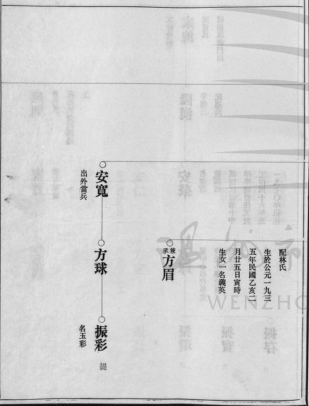 配林氏
生於公元一九三
五年民國乙亥二
月廿五日寅時
生女一名義英
兼承
方眉
安寬
出外當兵
方球
振彩
名玉彩
WENZHO